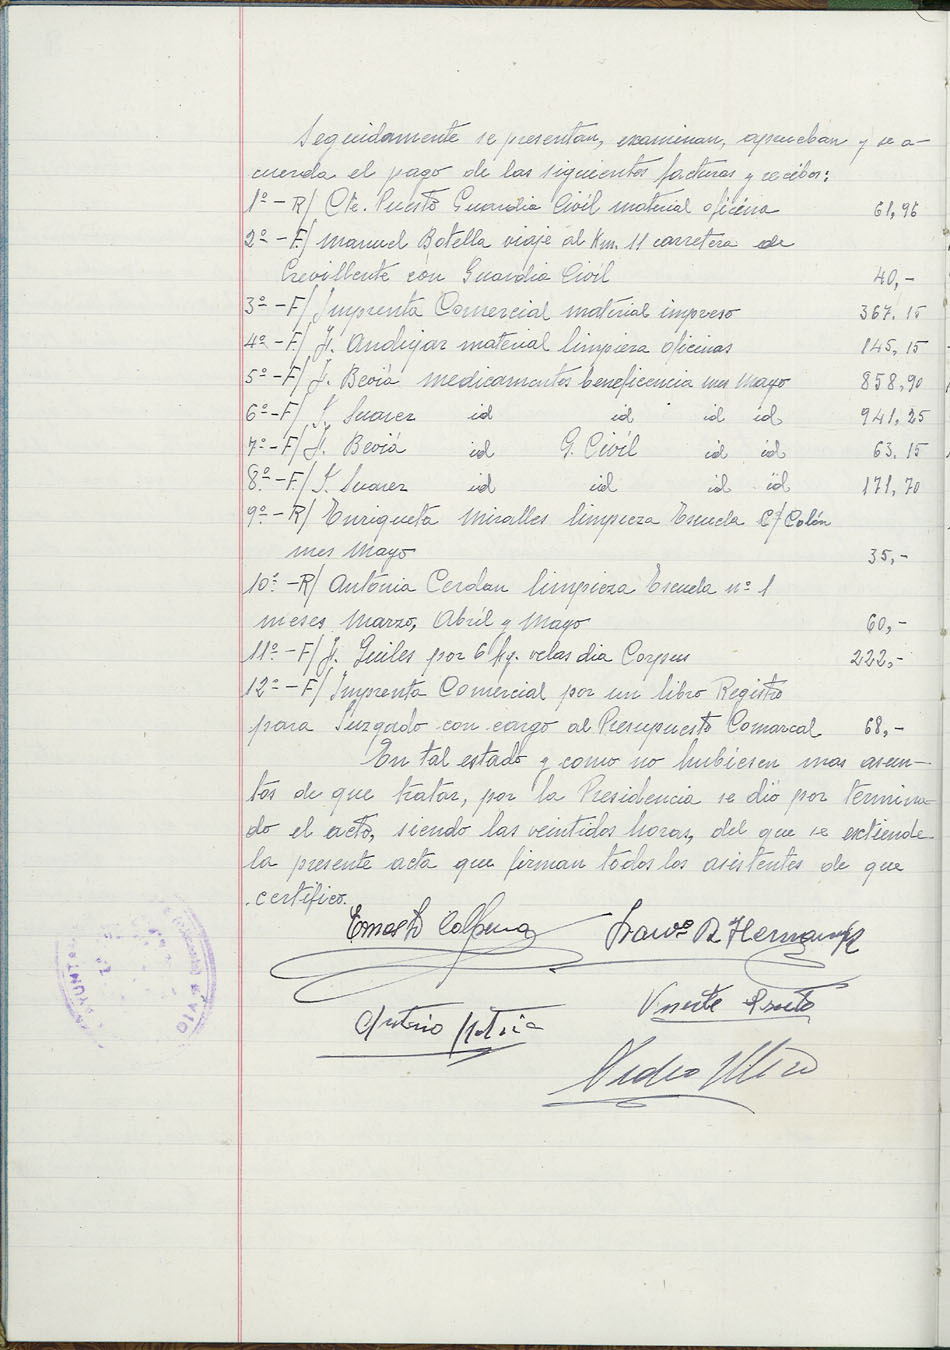 Seguidamente se presentan, examinan, aprueban y se a-
cuerda el pago de las siguientes facturas y recibos:
1º - R/ Cte. Puesto Guardia Civil material oficina 61,96
2º - F/ Manuel Botella viaje al Km. 11 carretera de
Crevillente con Guardia Civil 40,-
3º - F/ Imprenta Comercial material impreso 367,15
4º - F/ Andigar material limpieza oficinas 145,15
5º - F/ Beviá medicamentos beneficencia mes Mayo 858,90
6º - F/ Suarez id id id id 941,25
7º - F/ Beviá id G. Civil id id 63,15
8º - F/ Suarez id id id id 171,70
9º - R/ Enriqueta Miralles limpieza Escuela C/ Colón
mes Mayo 35,-
10º - R/ Antonia Cerdan limpieza Escuela nº 1
meses Marzo, Abril y Mayo 60,-
11º - F/ Guiles por 6 kg. velas dia Corpus 222,-
12º - F/ Imprenta Comercial por un libro Registro
para Juzgado con cargo al Presupuesto Comarcal 68,-
En tal estado y como no hubiesen mas asun-
tos de que tratar, por la Presidencia se dió por termina-
do el acto, siendo las veintidos horas, del que se extiende
la presente acta que firman todos los asistentes de que
certifico.
Ernesto Calpena Franco R Hernandez
Antonio Vicente
Pedro
AYUNT